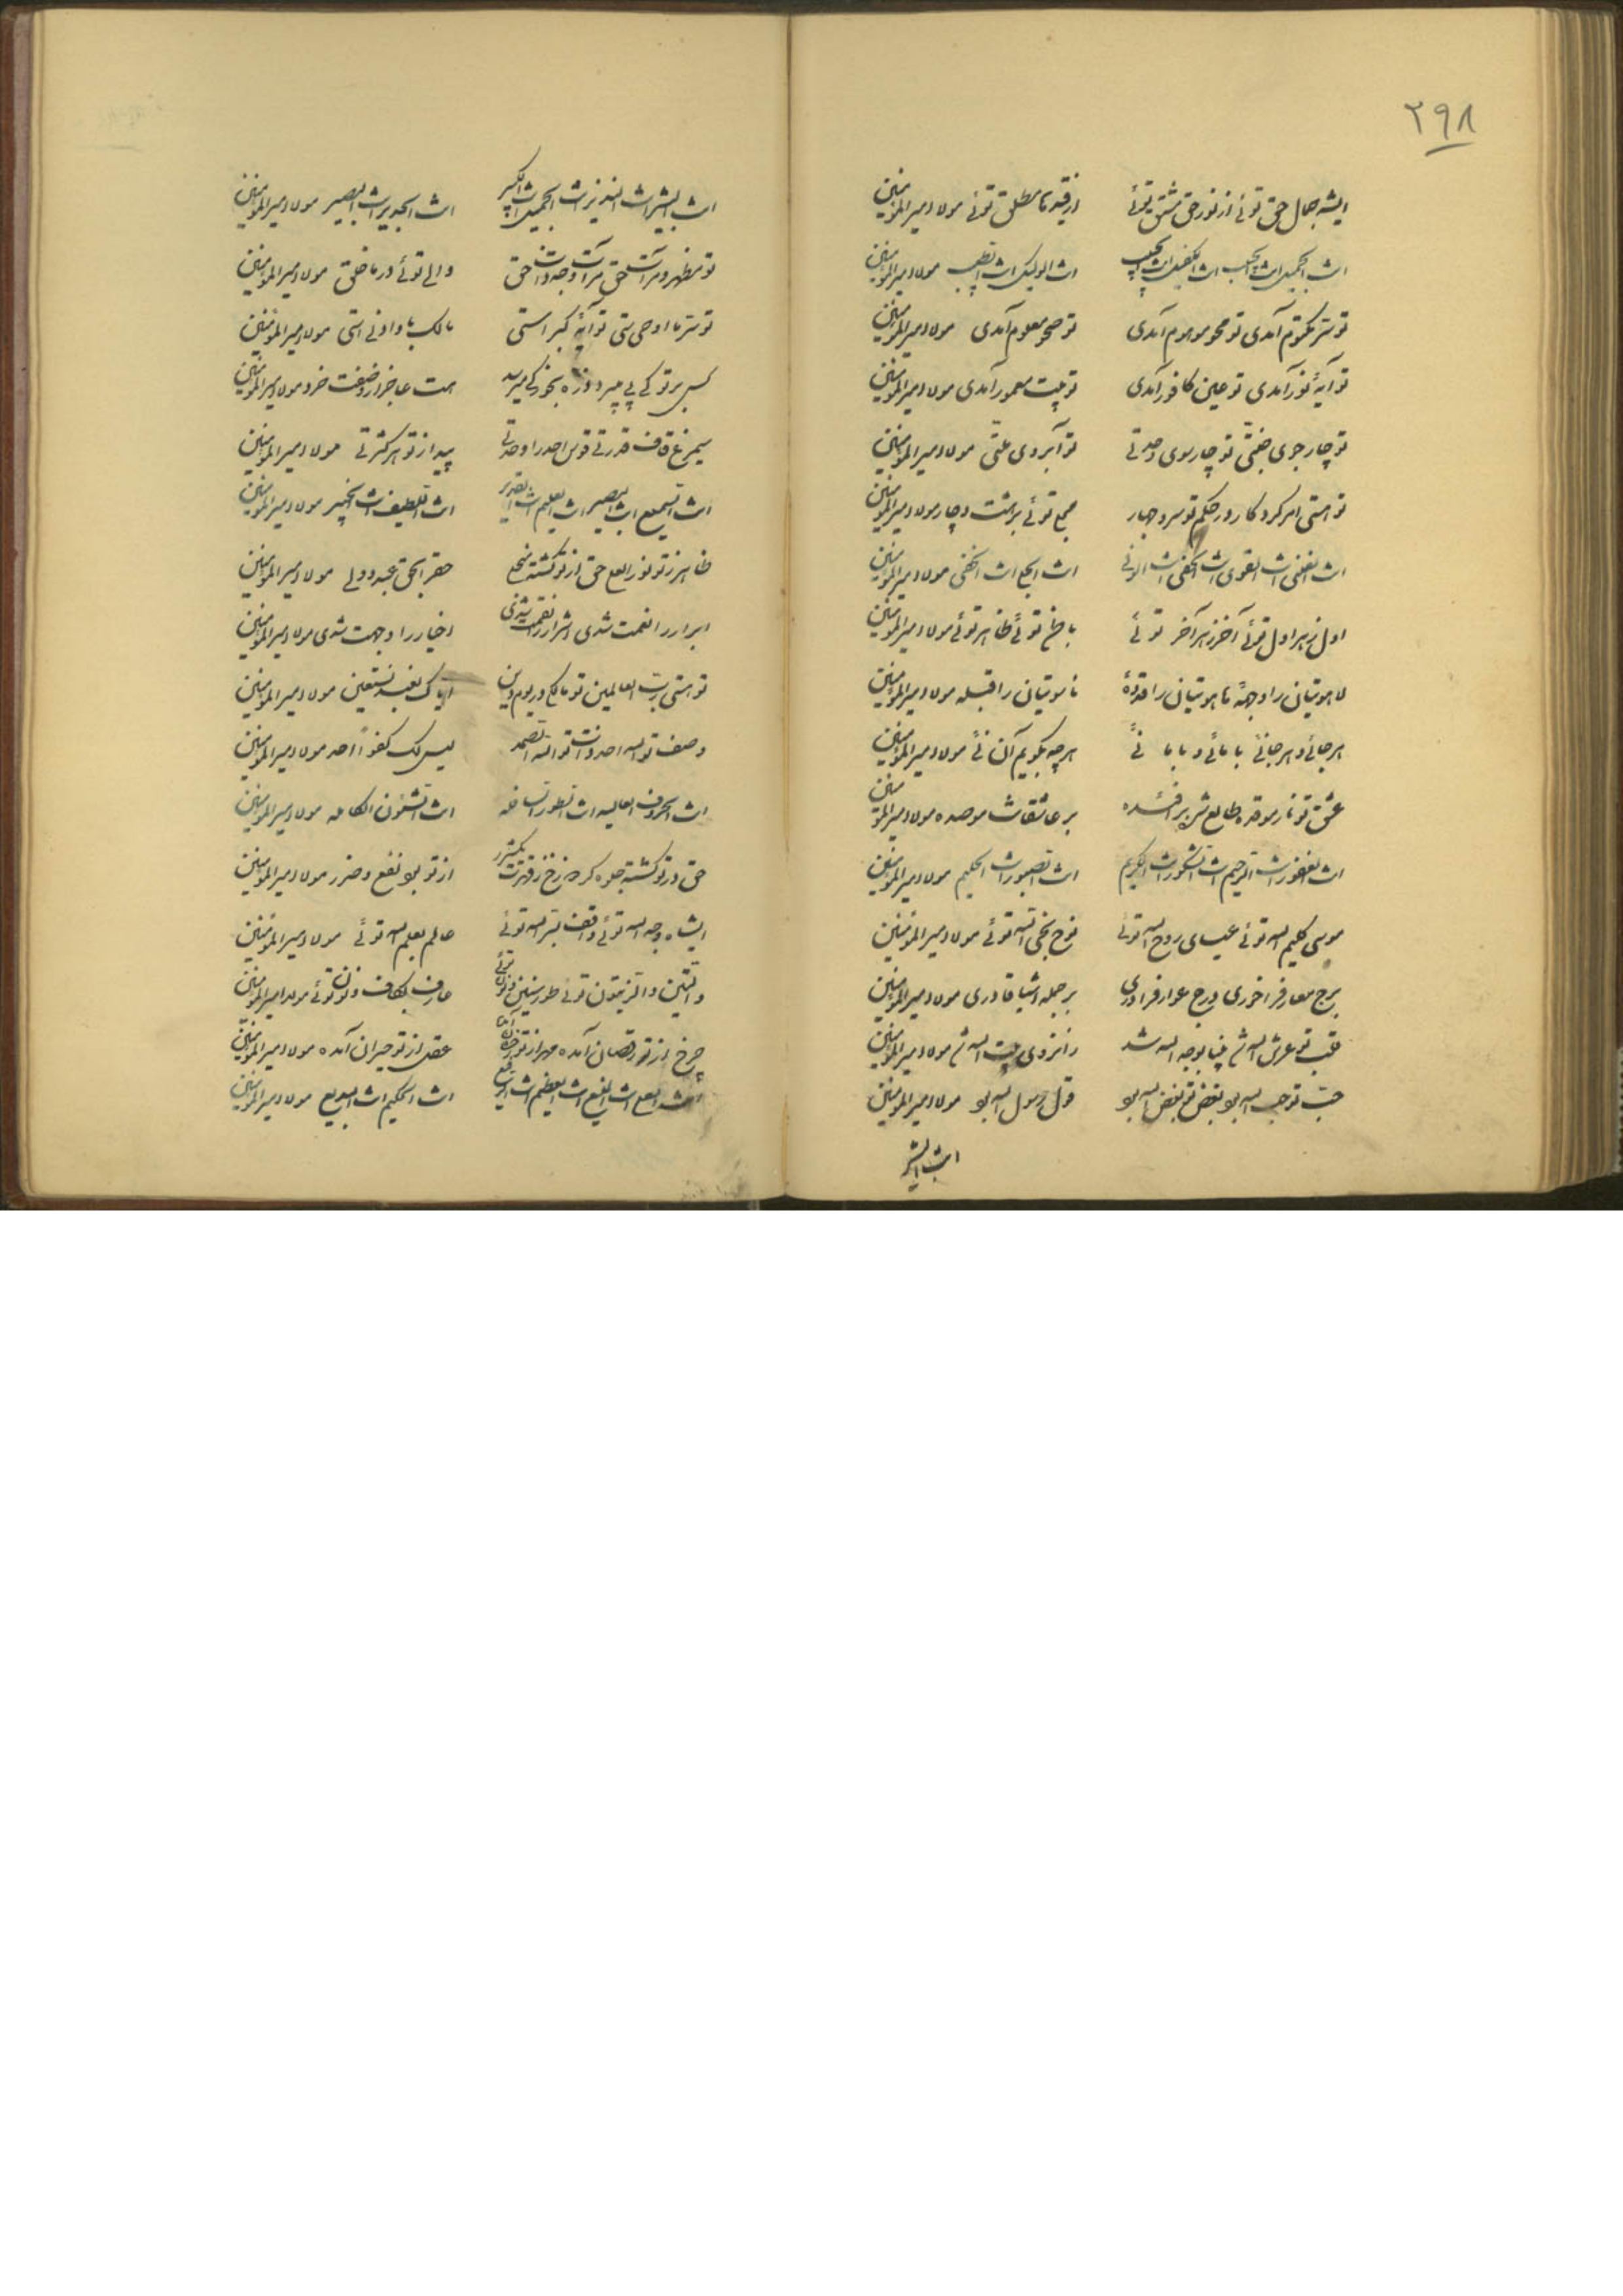 ٢٩٨
ایشه جمال حق توئی از نور حق مشتق توئی از قید ما مطلق توئی مولا امیرالمؤمنین
انت الجمیل انت الحبیب انت الکفیل انت انت الوکیل انت مولا امیرالمؤمنین
تو سر مکتوم آمدی تو محو موهوم آمدی تو صحو معلوم آمدی مولا امیرالمؤمنین
تو آیهٔ نور آمدی تو عین کافور آمدی تو بیت معمور آمدی مولا امیرالمؤمنین
تو چار جوی جنتی تو چار سوی وحدتی تو آبروی ملتی مولا امیرالمؤمنین
تو دستی امر کردکار در حکم تو سر و جهار مجمع توئی بر هشت و چار مولا امیرالمؤمنین
انت الغنی انت القوی انت الحفی انت الوفی انت الجلی انت الخفی مولا امیرالمؤمنین
اول ز هر اول توئی آخر ز هر آخر توئی باطن توئی ظاهر توئی مولا امیرالمؤمنین
لاهوتیان را وجههٔ ماهوتیان را قدوهٔ ناسوتیان را قبله مولا امیرالمؤمنین
هر جائی و هر جا نئی با مائی و با ما نئی هر چه بگویم آن نئی مولا امیرالمؤمنین
عشق تو نار موقده طالع شرر بر افئده بر عاشقانت موصده مولا امیرالمؤمنین
انت الغفور انت الرحیم انت الشکور انت الکریم انت الصبور انت الحکیم مولا امیرالمؤمنین
موسی کلیم الله توئی عیسای روح الله توئی نوح نجی الله توئی مولا امیرالمؤمنین
برج معارف را خوری درج عوارف را دری بر جمله اشیا قادری مولا امیرالمؤمنین
قلب تو عرش الله شد بوجه الله شد زانروی بیت الله شد مولا امیرالمؤمنین
حب تو حب الله بود بغض تو بغض الله بود قول رسول الله بود مولا امیرالمؤمنین
انت البشیر
انت البشیر انت النذیر انت انت الکبیر انت الجدیر انت البصیر مولا امیرالمؤمنین
تو مظهر و مرآت حق مرآت وجه و ذات حق والی توئی در ما خلق مولا امیرالمؤمنین
تو سر ما اوحی ستی تو آیهٔ کبراستی مالک باو ادنی استی مولا امیرالمؤمنین
کس بر تو کی پی میبرد ذره بخور کی میرسد هست عاجز از وصفت خرد مولا امیرالمؤمنین
سیمرغ قاف قدرتی قوس احد را وحدتی پیدا ز تو هر کثرتی مولا امیرالمؤمنین
انت السمیع انت البصیر انت العلیم انت القدیر انت اللطیف انت الخبیر مولا امیرالمؤمنین
ظاهر ز تو نور العلی حق از تو گشته منجلی حقر بحق عبد و ولی مولا امیرالمؤمنین
ابرار را نعمت شدی اشرار را نقمت شدی اخیار را وجهت شدی مولا امیرالمؤمنین
تو هستی رب العالمین تو مالک در یوم دین ایاک نعبد نستعین مولا امیرالمؤمنین
وصف تو الله احد ذات تو الله الصمد لیس لک کفوا احد مولا امیرالمؤمنین
انت الحروف العالیه انت انت الشئون الکامله مولا امیرالمؤمنین
حق در تو گشته جلوه گر از تو بود نفع و ضرر مولا امیرالمؤمنین
ایشاه وجه الله توئی واقف بسر الله توئی عالم بعلم الله توئی مولا امیرالمؤمنین
والتین والزیتون توئی طور سنین توئی عارف بکاف و نون توئی مولا امیرالمؤمنین
چرخ از تو رقصان آمده مهر از تو رخشان آمده عقل از تو حیران آمده مولا امیرالمؤمنین
انت العلی انت انت العظیم انت الرفیع انت الحکیم انت البدیع مولا امیرالمؤمنین